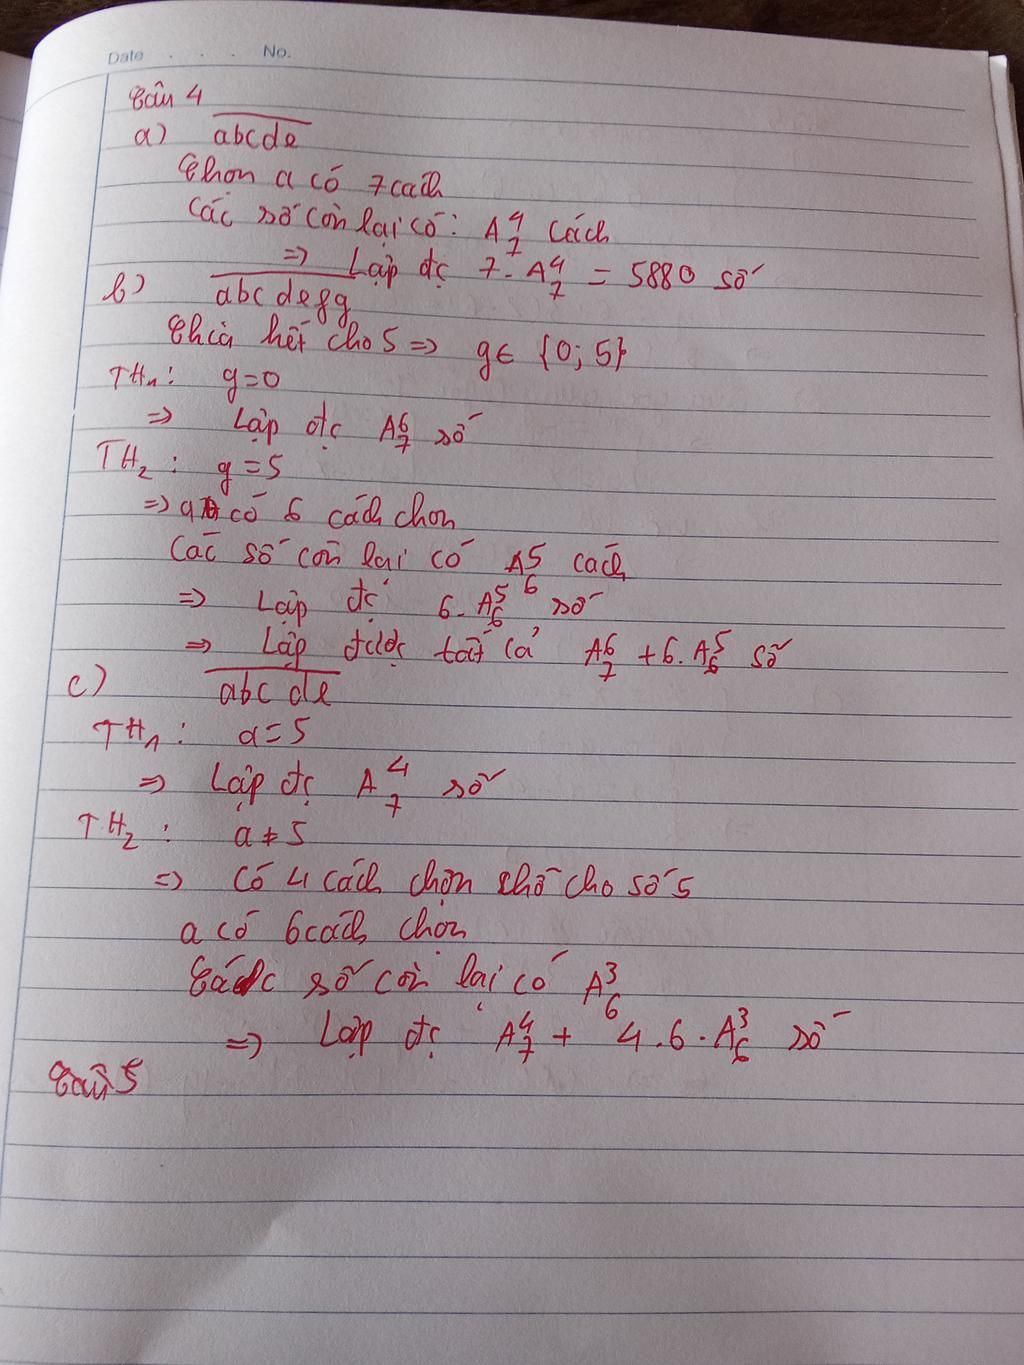 Date . . . . No.
Câu 4
a) abcde
Chọn a có 7 cách
Các số còn lại có: A⁴₇ cách
=> Lập đc 7. A⁴₇ = 5880 số
b) abcdefg
Chia hết cho 5 => g ∈ {0; 5}
TH₁: g=0
=> Lập đc A⁶₇ số
TH₂: g=5
=> a có 6 cách chọn
Các số còn lại có A⁵₆ cách
=> Lập đc 6. A⁵₆ số
=> Lập được tất cả A⁶₇ + 6. A⁵₆ số
c) abcde
TH₁: a=5
=> Lập đc A⁴₇ số
TH₂: a ≠ 5
=> Có 4 cách chọn chỗ cho số 5
a có 6 cách chọn
Các số còn lại có A³₆
=> Lập đc A⁴₇ + 4.6.A³₆ số
Câu 5